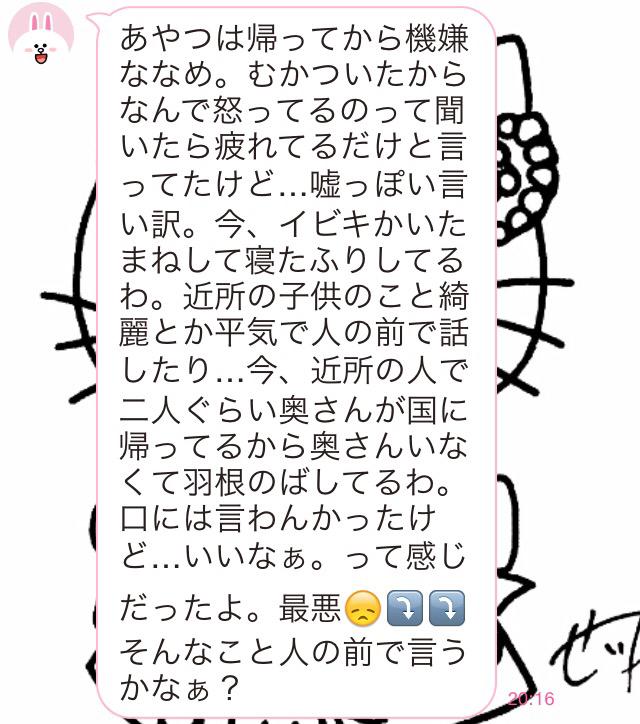 あやつは帰ってから機嫌
ななめ。むかついたから
なんで怒ってるのって聞
いたら疲れてるだけと言
ってたけど…嘘っぽい言
い訳。今、イビキかいた
まねして寝たふりしてる
わ。近所の子供のこと綺
麗とか平気で人の前で話
したり…今、近所の人で
二人ぐらい奥さんが国に
帰ってるから奥さんいな
くて羽根のばしてるわ。
口には言わんかったけ
ど…いいなぁ。って感じ
だったよ。最悪😞⤵️⤵️
そんなこと人の前で言う
かなぁ？
20:16